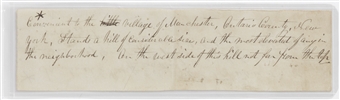 *
Convenient to the village of Manchester, Ontario County, New
York, stands a hill of considerable size, and the most elevated of any in
the neighborhood, On the west side of this hill not far from the top